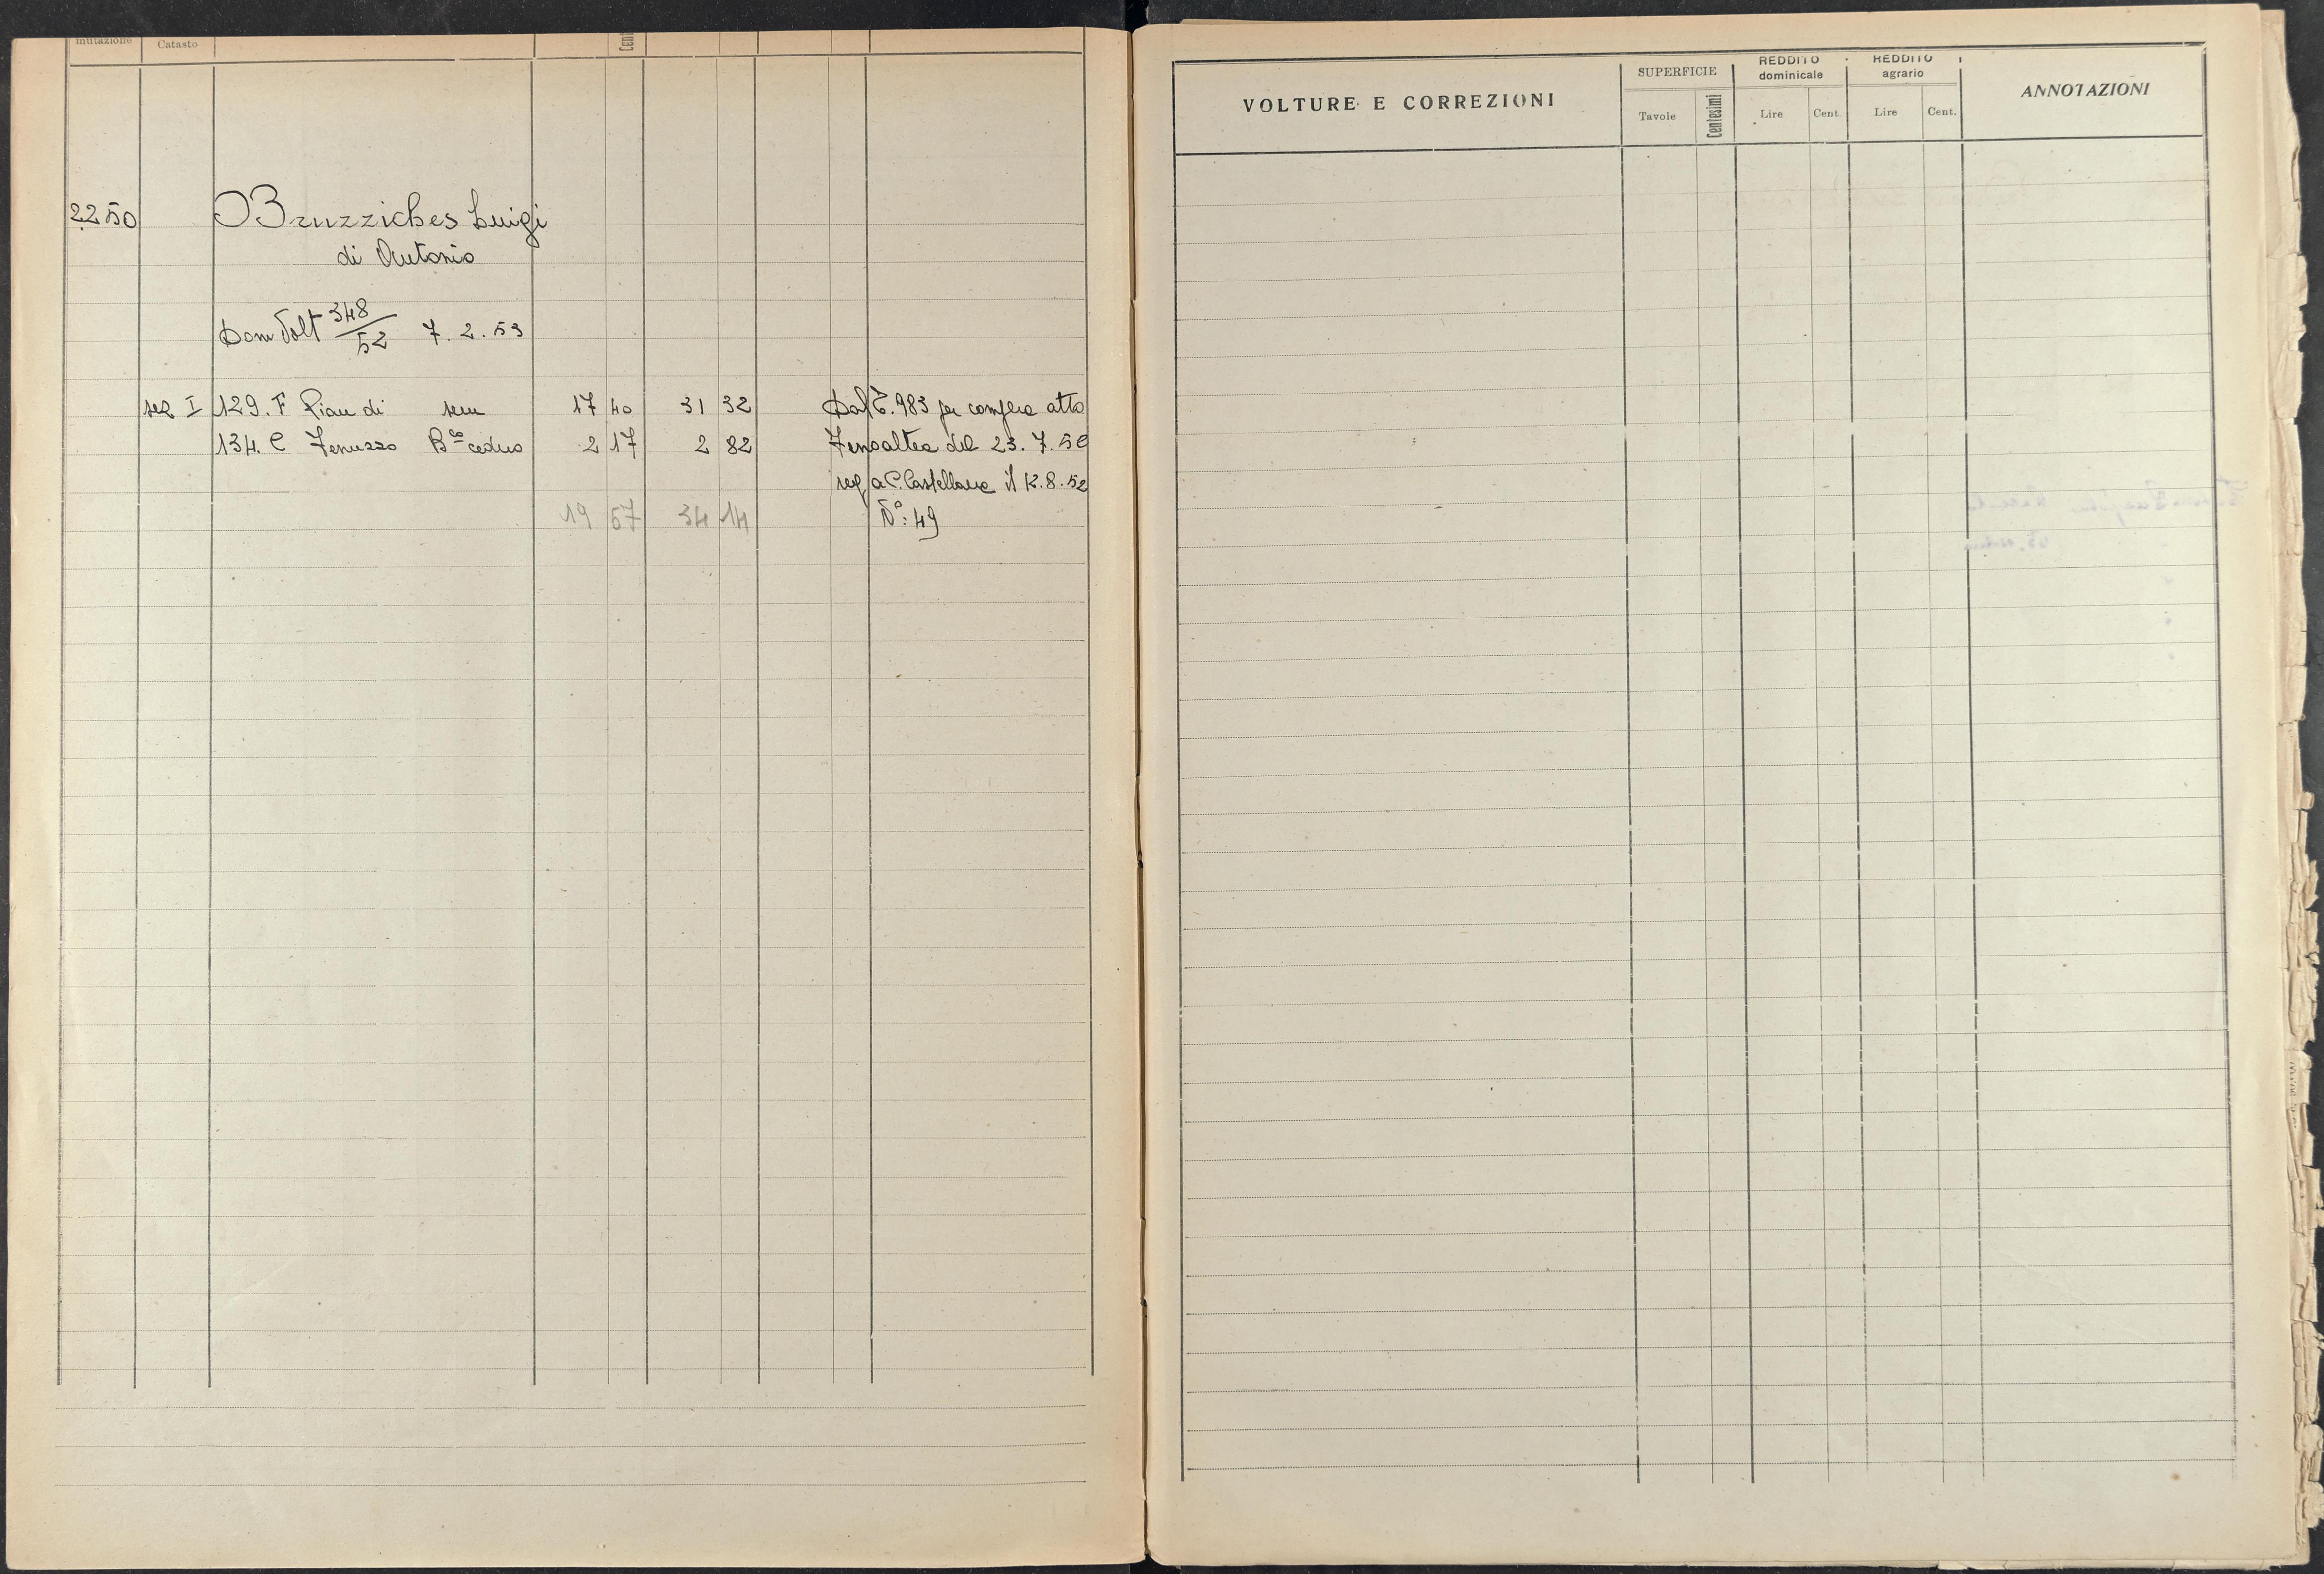 mutazione Catasto Cent
2250 Bruzziches Luigi
di Antonio
Dom Volt 348/52 7.2.53
sez I 129. F Pian di sem 17 40 31 32 Dal C. 983 per compra atto
134. C Fenuzzo Bco ceduo 2 17 2 82 Fenoaltea del 23.7.52
reg a C. Castellana il 12.8.52
19 57 34 14 No: 49
VOLTURE E CORREZIONI
SUPERFICIE
Tavole Centesimi
REDDITO
dominicale
Lire Cent
REDDITO
agrario
Lire Cent.
ANNOTAZIONI